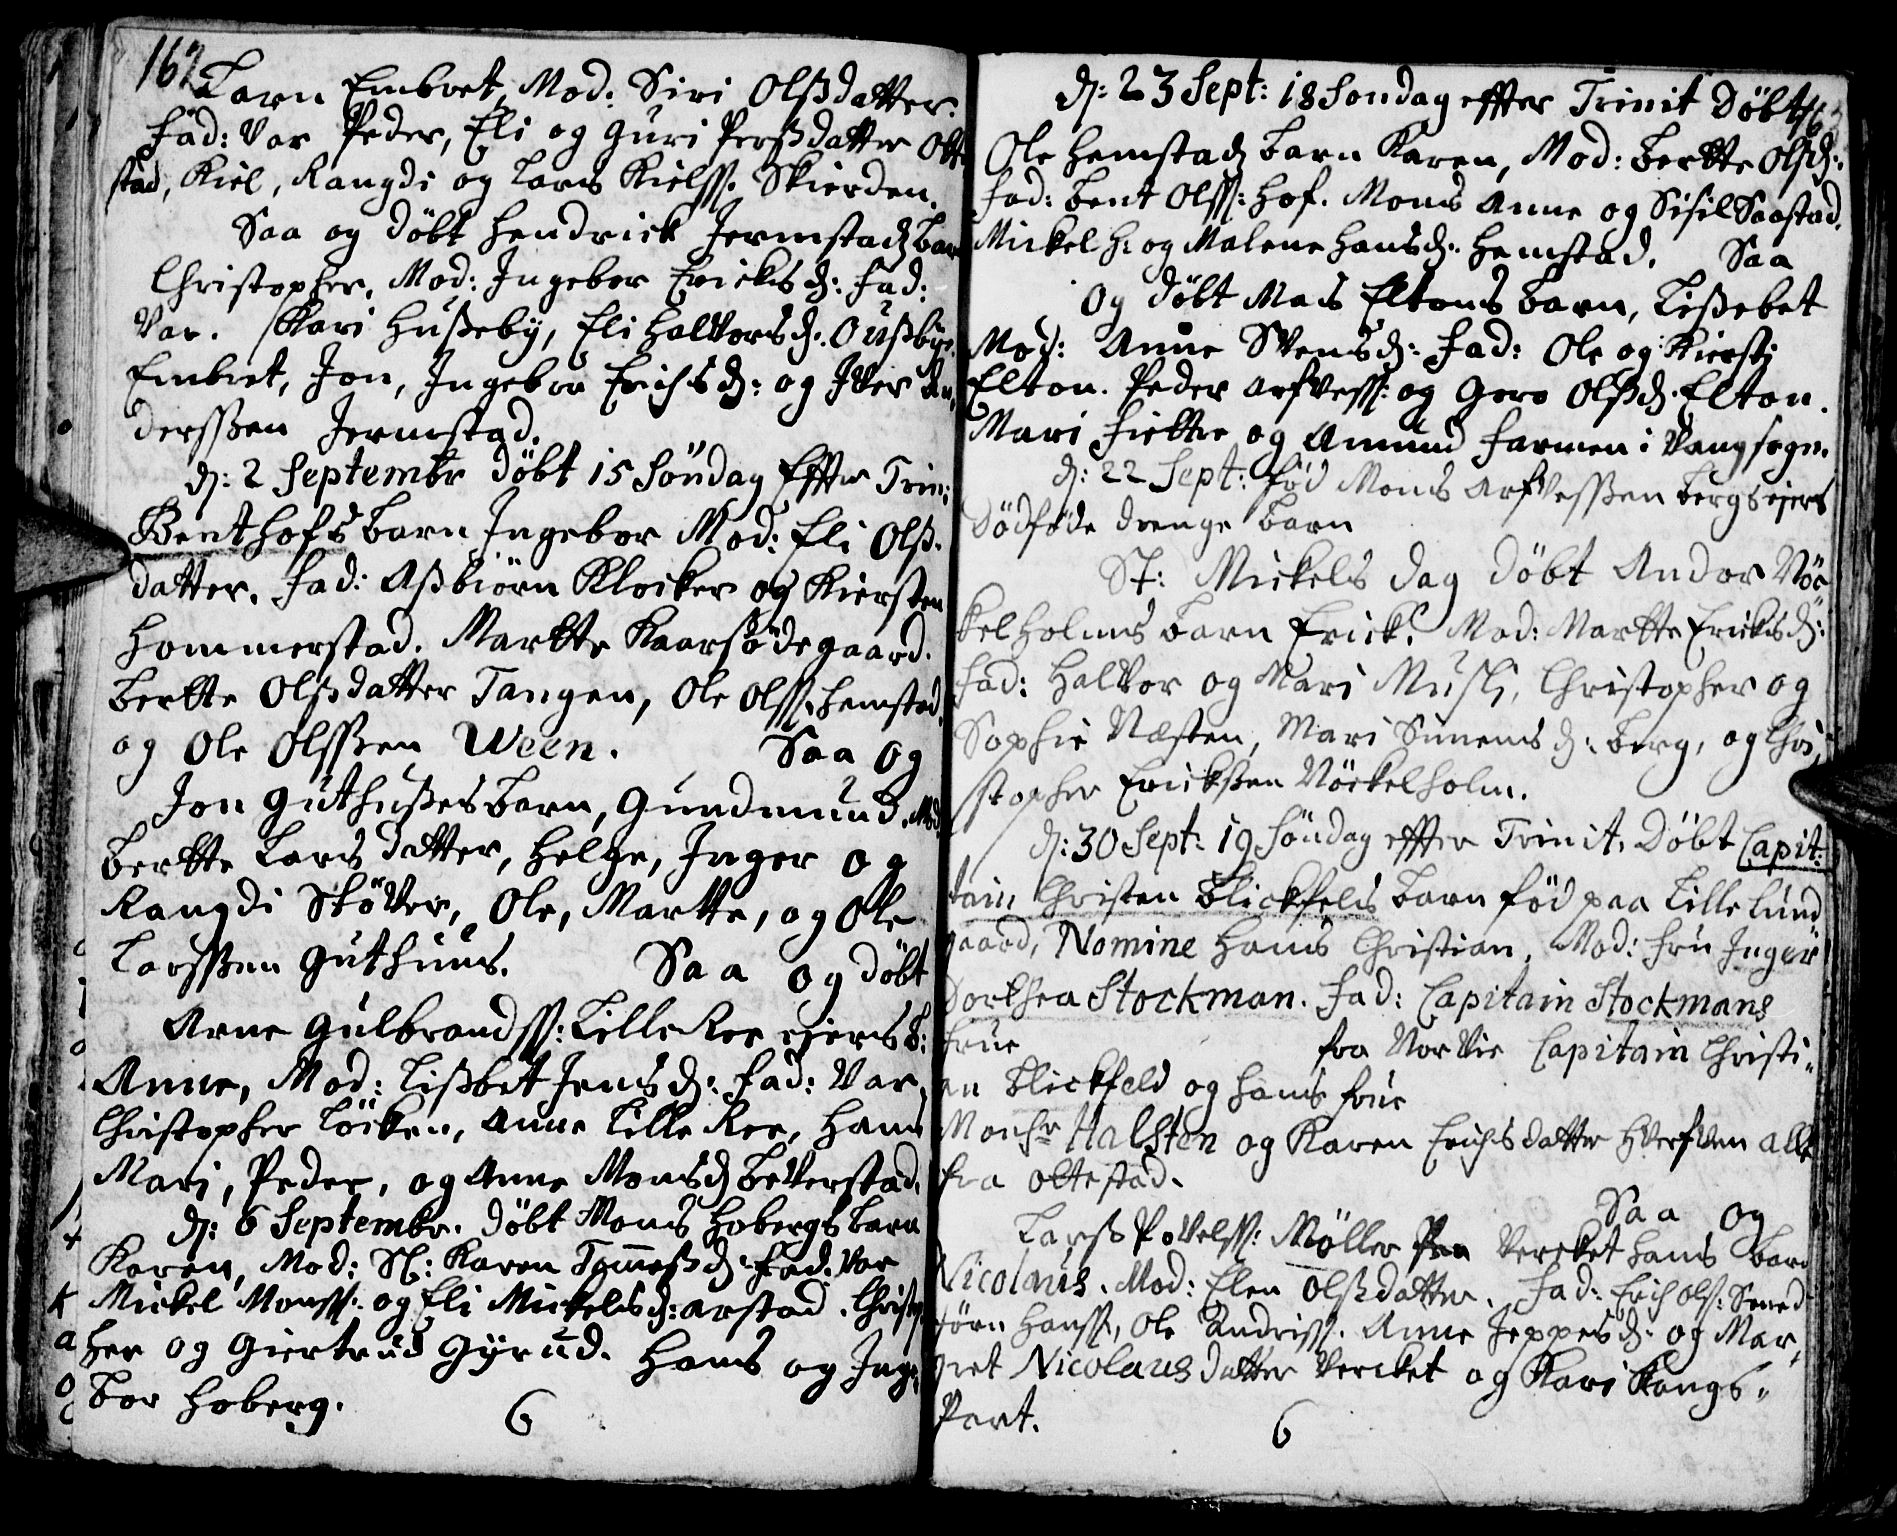 162
Barn Embret, Mod: Siri Olssdatter.
Fad: Var Peder, Eli og Guri Perssdatter Otte
stad, Kiel, Rangdi og Lars Kielss: Skierden.
Saa og döbt Hendrick Jermstads barn
Christopher, Mod: Ingebor Ericksd: Fad:
Var. Kari Husseby, Eli Halvorsd: Oussbye.
Embret, Jon, Ingebor Erichsd: og Iver An,
derssen Jermstad.
d: 2 Septembr döbt 15 Söndag Effter Trin:
Bent Hofs barn Ingebor Mod: Eli Olss-
datter. Fad: Assbiörn Klocker og Kiersten
Hommerstad. Martte Kaarsödegaard.
Bertte Olssdatter Tangen, Ole Olss: Hemstad
og Ole Olssen Ween. Saa og
Jon Guthusses barn, Gundmund. Mod
Bertte Larsdatter, Helge, Inger og
Rangdi Stötter, Ole, Martte, og Ole
Larssen Guthuus. Saa og döbt
Arne Gulbrandss: Lille Ree eiers b:
Anne, Mod: Lissbet Jensd: Fad: Var
Christopher Löcken, Anne Lille Ree, Hans
Mari, Peder, og Anne Monsd Beverstad.
d: 6 Septembr. döbt Mons Hobergs barn
Karen, Mod: Sl: Karen Tomessd: Fad: Var
Mickel Monss: og Eli Mickelsd: Arstad. Christop
her og Giertrud Gyrud. Hans og Inge,
bor Hoberg.
6
d: 23 Sept: 18 Söndag effter Trinit Döbt
Ole Hemstads barn Karen, Mod: Bertte Olsd:
Fad: Bent Olss: Hof. Mons Anne og Sisil Saastad.
Mickel H: og Malene Hansd: Hemstad. Saa
og döbt Mas Eltons barn, Lissebet
Mod: Anne Svensd: Fad: Ole og Kiersti
Elton. Peder Arfvess: og Goro Olssd: Elton.
Mari Fiette og Amund Farmen i Vang sogn.
d: 22 Sept: föd Mons Arfvessen bergs eiers
Dödföde drenge barn
St: Mickels dag döbt Andor Nöc
kelholms barn Erick. Mod: Martte Ericksd:
Fad: Halvor og Mari Musli, Christopher og
Sophie Næsten, Mari Simensd: berg, og Chri,
stopher Erickssen Nöckelholm.
d: 30 Sept: 19 Söndag effter Trinit. Döbt Capit:
tain Christen Blickfels barn föd paa Lille Lund
gaard, Nomine Hans Christian, Mod: Fru Inger
Dorthea Stockman. Fad: Capitain Stockmans
Frue fra Vor Vie Capitain Christi,
an Blickfeld og Hans Frue
Monsr Halsten og Karen Erichsdatter Hverfven alle
fra Ottestad.
Saa og
Larss Povelss: Möller paa Vercket hans barn
Nicolaus. Mod: Elen Olssdatter. Fad: Erich Olss: Smed
Jörn Hanss, Ole Andriss. Anne Jeppesd: og Mar,
gret Nicolausdatter Vercket og Kari Kongs,
Part.
6